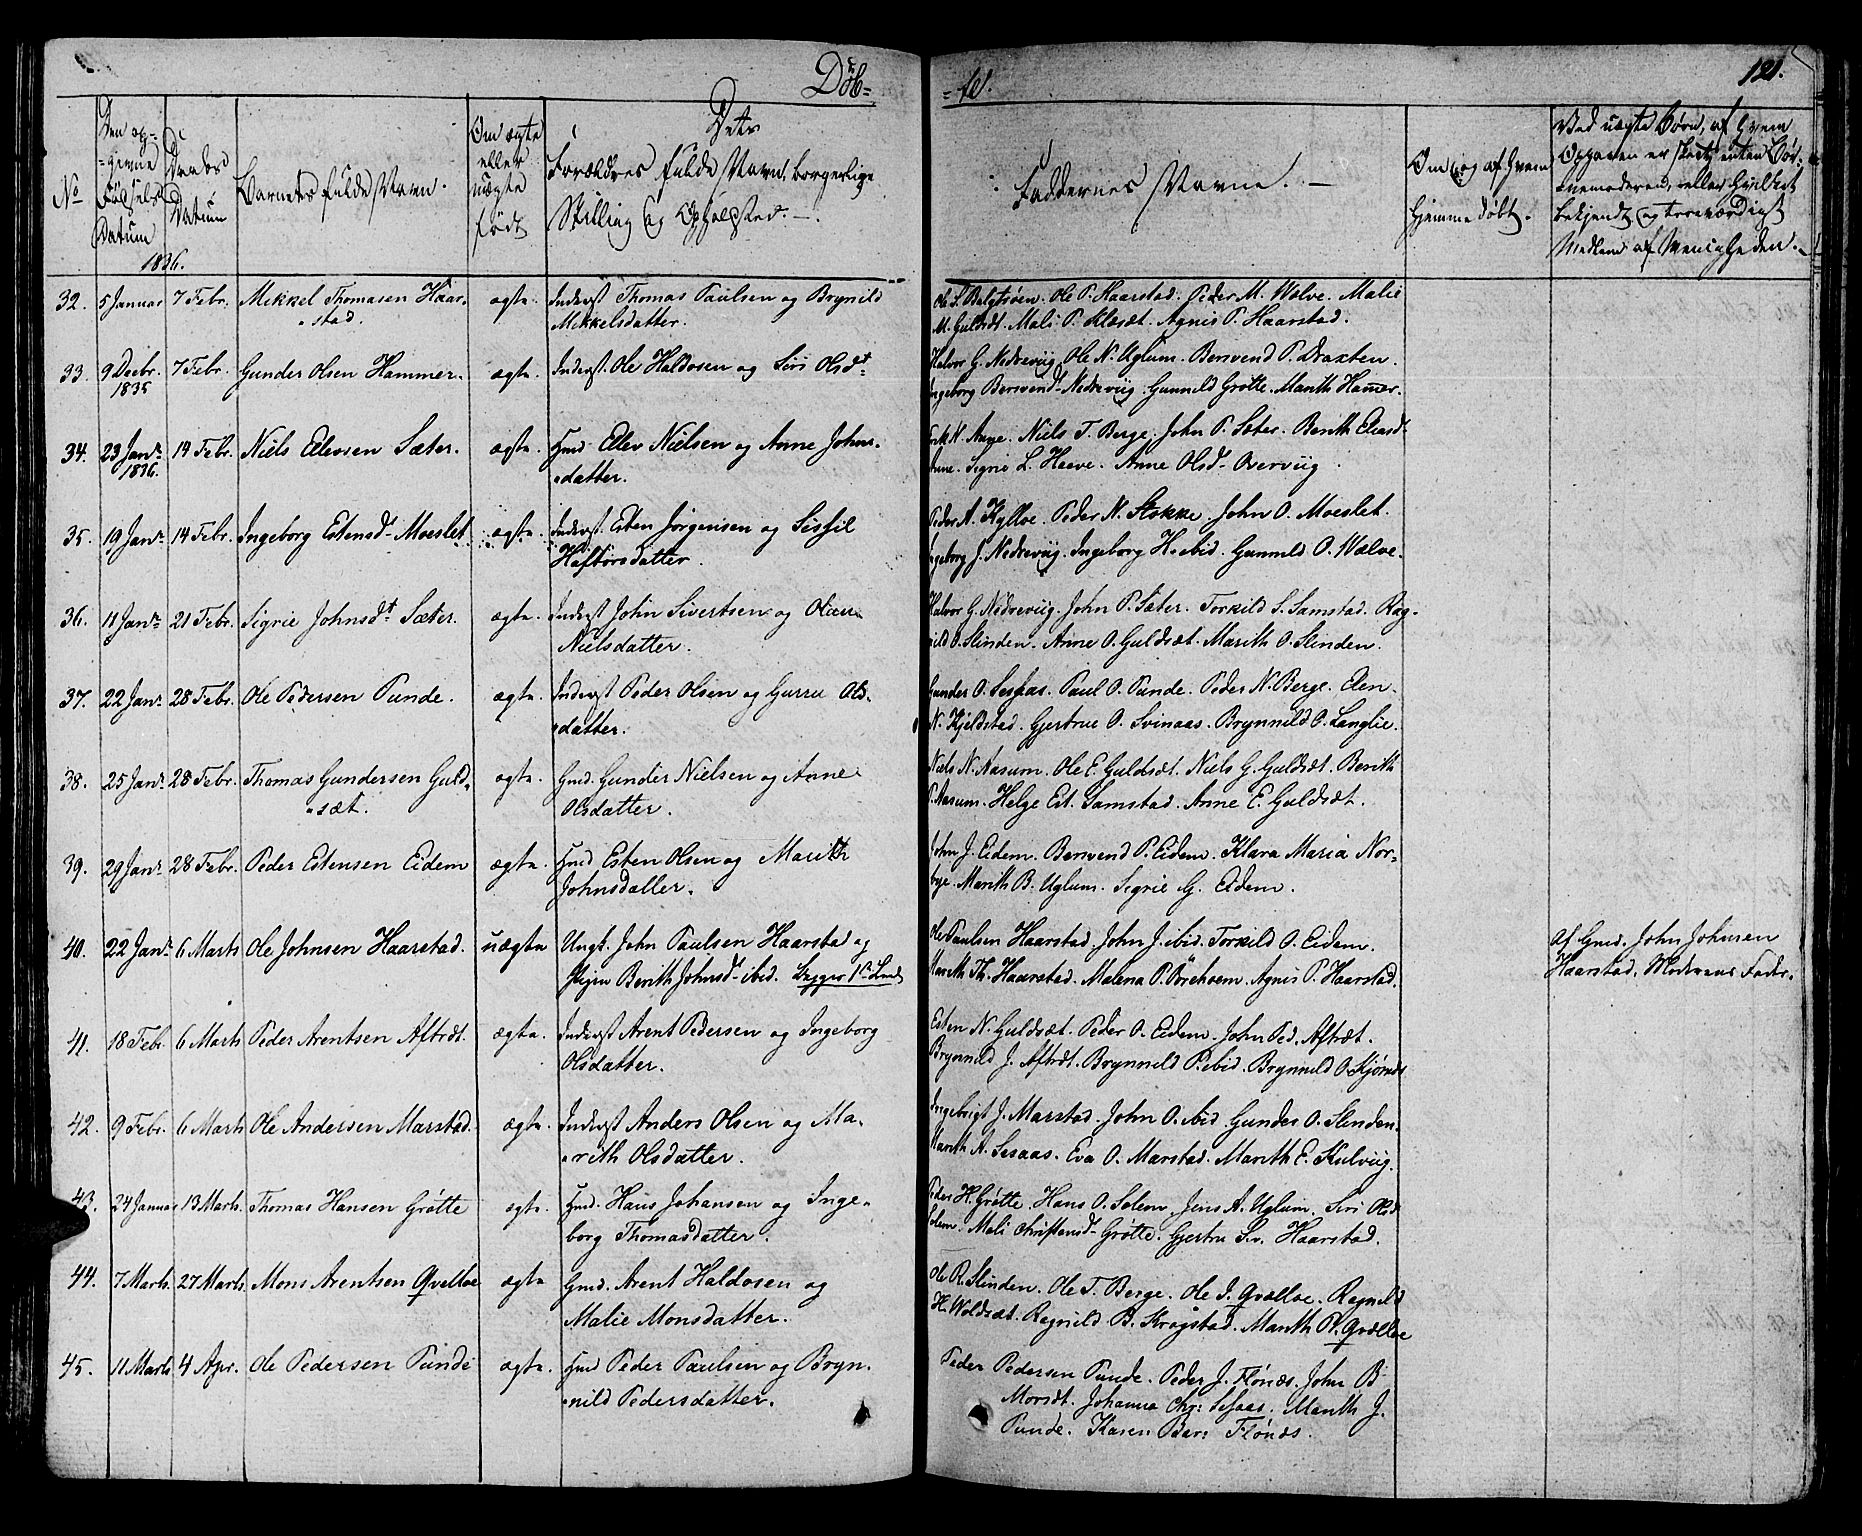 Døb-
-te.
121.
No
Den op-
-givne
Fødsels
Datum
Daabs
Datum
Barnets fulde Navn.
Om ægte
eller
uægte
født
Dets
Forældres fulde Navn, borgerlige
Stilling og Opholdsted.
Faddernes Navne.
Om og af hvem
hjemmedøbt.
Ved uægte Børn, af hvem
Opgaven er skeet, enten Bar-
nemoderen, eller hvilket
bekjendt og troeværdigt
Medlem af Menigheden.
1836.
32. 5 Januar 7 Febr. Mikkel Thomasen Haar- ægte. Inderst Thomas Paulsen og Brynild
stad. Mikkelsdatter.
Ole L. Ole P. Haarstad. Peder M. Wælve. Malie
M. Guldsæt. Mali P. Klæsæt. Agnis P. Haarstad.
33. 9 Decbr. 7 Febr. Gunder Olsen Hammer. ægte. Inderst. Ole Haldosen og Siri Olsdt
1835
Halvor G. Nedreviig. Ole N. Uglum. Berivend P. Draxten.
Ingeborg Berivendt Nedreviig. Gunnild Grøtte. Marith Hamer.
34. 23 Janr. 14 Febr. Niels Ellevsen Sæter. ægte. Gmd Ellev Nielsen og Anne Johns-
1836. datter.
Anne. Niels T. Berge. John P. Sæter. Berith Eliasdt
Aune. Sigrie L. Heeve. Anne Olsdt Overviig
35. 19 Janr 14 Febr. Ingeborg Estensdt Moeslet. ægte. Inderst. Esten Jørgensen og Sissil
Haftorsdatter.
Peder A. Kylloe. Peder N. Stokke. John O. Moeslet.
Ingeborg J. Nedreviig. Ingeborg H. ibid. Gunnild O. Wælve.
36. 11 Janr 21 Febr. Sigrie Johnsdt Sæter. ægte. Inderst John Sivertsen og
Nielsdatter.
Halvor G. Nedreviig. John P. Sæter. Torkild S. Samstad. Rag-
nild O. Slinden. Anne O. Guldsæt. Marith O. Slinden.
37. 22 Janr 28 Febr. Ole Pedersen Punde. ægte. Inderst Peder Olsen og Gurru Ols-
datter.
Gunder O. Sessaas. Paul O. Punde. Peder N. Berge. Elen
N. Kjeldstad. Gjertrue O. Svinaas. Brynnild O. Langlie.
38. 25 Janr 28 Febr. Thomas Gundersen Guld- ægte. Gmd. Gunder Nielsen og Anne
sæt. Olsdatter.
Niels N. Aasum. Ole E. Guldsæt. Niels G. Guldsæt. Berith
P. Aasum. Helge Est. Samstad. Anne E. Guldsæt.
39. 29 Janr 28 Febr. Peder Estensen Eidem ægte. Gmd Esten Olsen og Marith
Johnsdatter.
John J. Eidem. Berivend P. Eidem. Klara Maria Nor-
bye. Marith B. Uglum. Sigrie G. Eidem.
40. 22 Janr 6 Marts Ole Johnsen Haarstad. uægte Ungk. John Paulsen Haarstad og
Pigen Berith Johnsdt ibid. Begges 1ste
Ole Paulsen Haarstad. John J. ibid. Torkild O. Eidem.
Marith Th. Haarstad. Malena P. Agnis P. Haarstad.
Af Gmd. John Johnsen
Haarstad, Moderens Fader.
41. 18 Feb. 6 Marts Peder Arentsen Aftræt. ægte. Inderst Arent Pedersen og Ingeborg
Olsdatter.
Esten N. Guldsæt. Peder O. Eidem. John Ped. Aftræt.
Brynnild J. Aftræt. Brynnild P. ibid. Brynnild O. Kjøsnæs
42. 9 Febr. 6 Marts Ole Andersen Marstad. ægte. Inderst Anders Olsen og Ma-
rith Olsdatter.
Ingebrigt J. Marstad. John O. ibid. Gunder O. Slinden.
Marith A. Sesaas. Eva O. Marstad. Marith E. Kulviig.
43. 24 Januar 13 Marts. Thomas Hansen Grøtte ægte. Gmd. Hans Johansen og Inge-
borg Thomasdatter.
Peder H. Grøtte. Hans O. Solem. Jens A. Uglum. Siri Olsdt
Solem. Mali Christensdt Grøtte. Gjertru Sv. Haarstad.
44. 7 Marts 27 Marts. Mons Arentsen Qvelloe ægte Gmd. Arent Haldosen og
Malie Monsdatter.
Ole R. Slinden. Ole T. Berge. Ole J. Qvælloe. Ragnild
H. Woldsæt. Ragnild B. Kragstad. Marith P. Qvælloe
45. 11 Marts 4 Apr. Ole Pedersen Punde ægte. Gmd Peder Paulsen og Bryn-
nild Pedersdatter.
Peder Pedersen Punde. Peder J. Flønæs. John B.
Morsæt. Johanna Chr: Sesaas. Marith J.
Punde. Karen Ber: Flønæs.